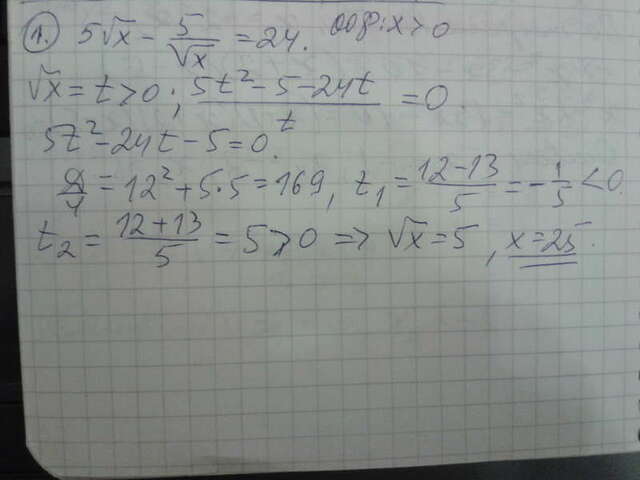 1. 5√x - 5/√x = 24. ООФ: x > 0
√x = t > 0; (5t² - 5 - 24t)/t = 0
5t² - 24t - 5 = 0.
D/4 = 12² + 5·5 = 169, t₁ = (12 - 13)/5 = -1/5 < 0.
t₂ = (12 + 13)/5 = 5 > 0 => √x = 5, x = 25.